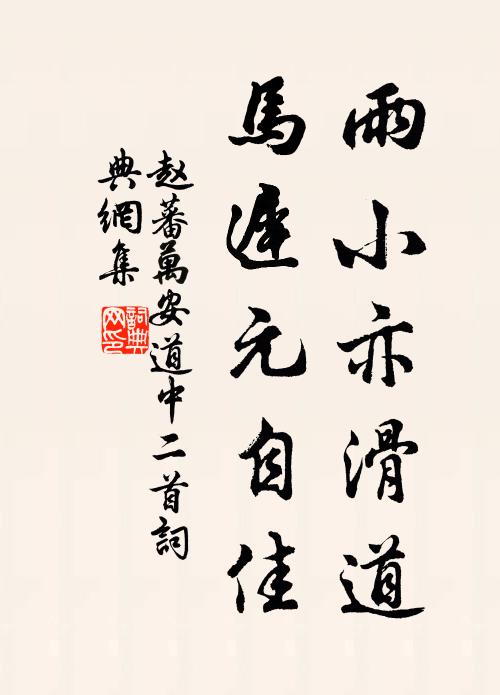 雨小亦滑道
馬遲元自佳
赵蕃萬安道中二首詞
典網集
詞典网印